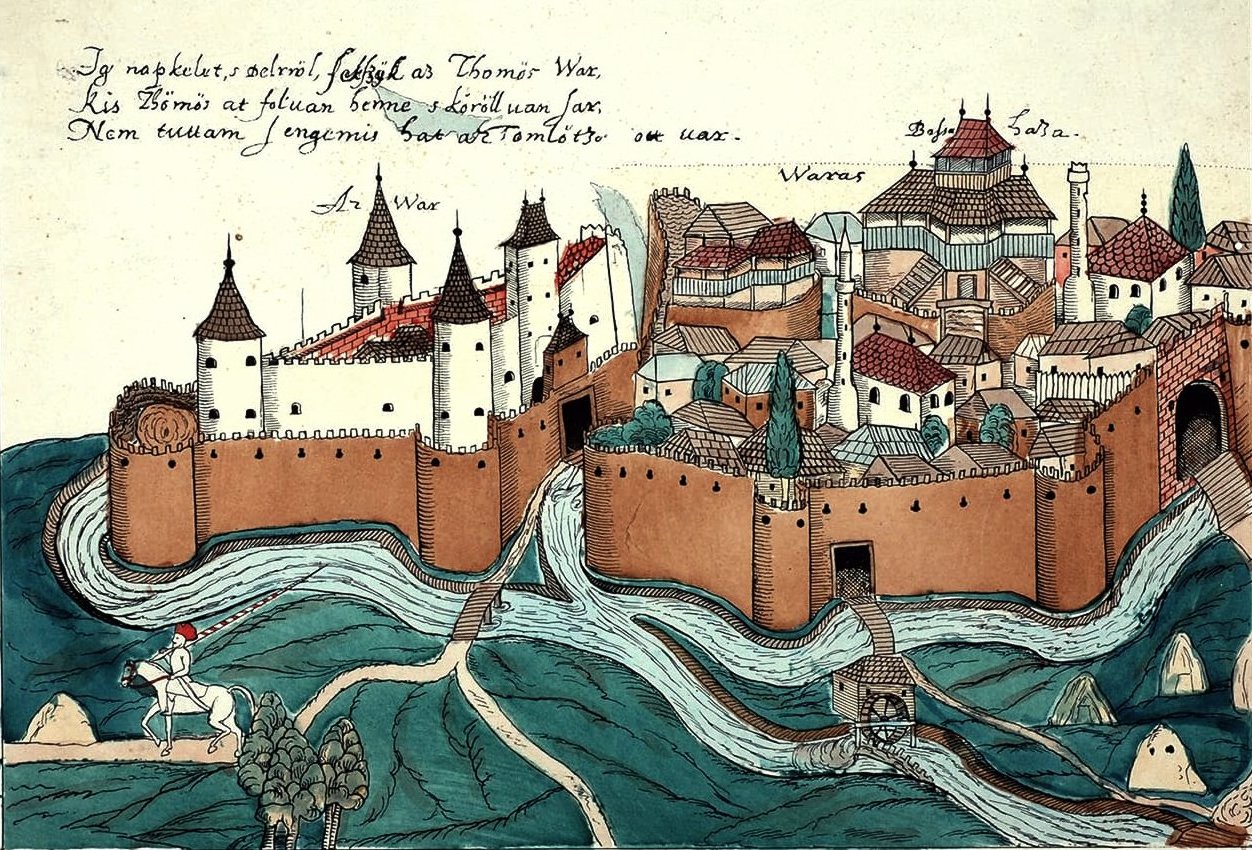 Ig napkelet, s Delrröl, fekßyk az Thomös War,
Kis Thömös at foluan benne s köröll uan sar,
Nem tuttam s engemis hat az Tomlötzo ott uar.
Az War
Waras
Bassa haza.